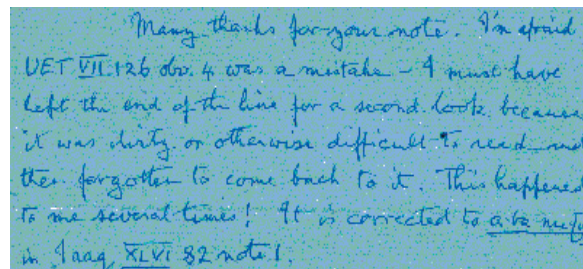 Many thanks for your note. I'm afraid
UET VII 126 obv. 4 was a mistake – I must have
left the end of the line for a second look because
it was dirty or otherwise difficult to read and
then forgotten to come back to it. This happened
to me several times! It is corrected to a ba
in Iraq XLVI 82 note 1.